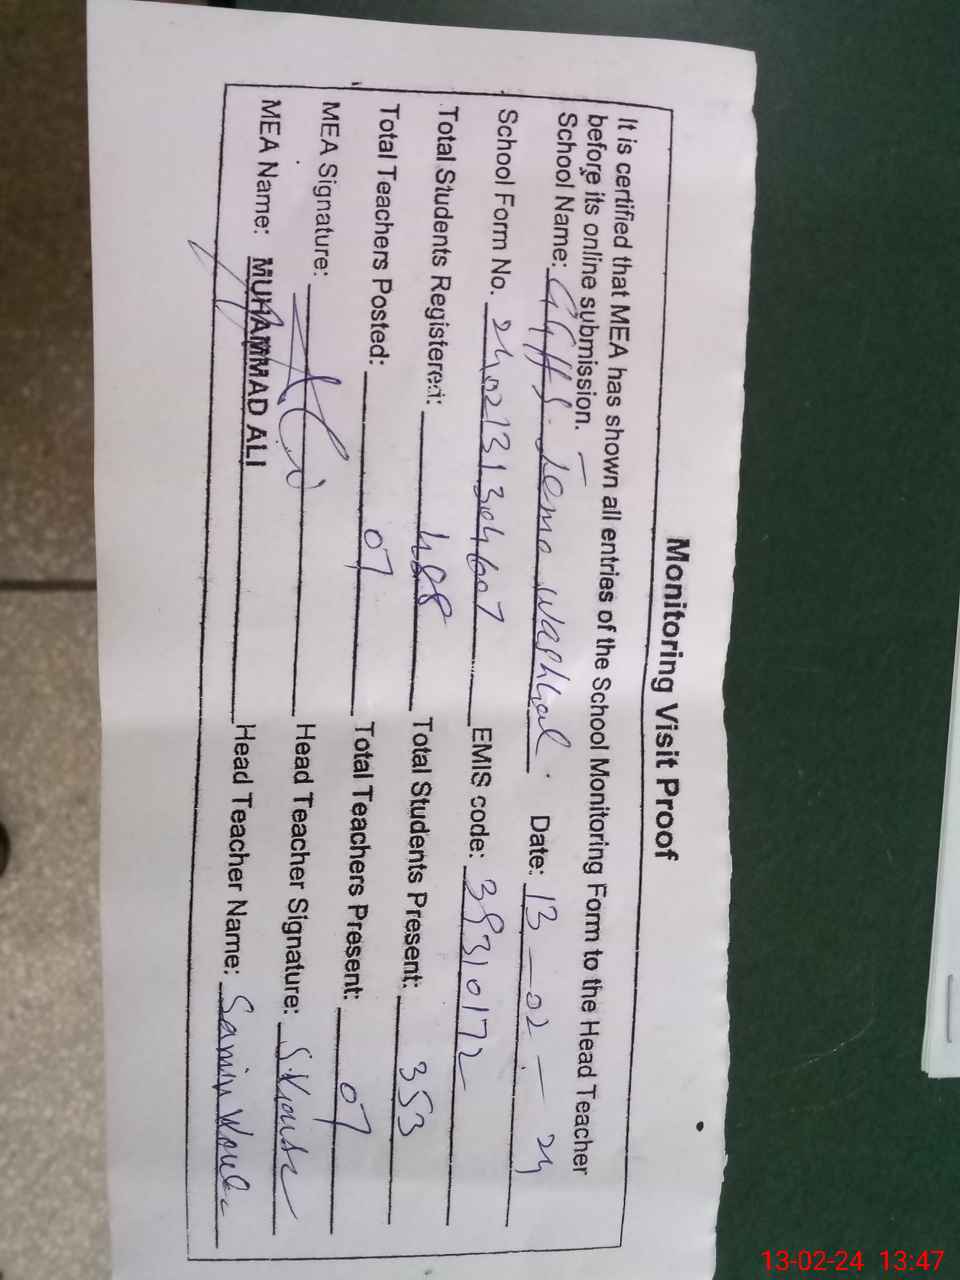 Monitoring Visit Proof
It is certified that MEA has shown all entries of the School Monitoring Form to the Head Teacher
before its online submission.
School Name: GGHS. Date: 13-02-24
School Form No. EMIS code: 38310172
Total Students Registered: 488 Total Students Present: 353
Total Teachers Posted: 07 Total Teachers Present: 07
MEA Signature: Head Teacher Signature:
MEA Name: MUHAMMAD ALI Head Teacher Name:
13-02-24 13:47